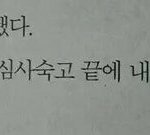 했다.
심사숙고 끝에 내